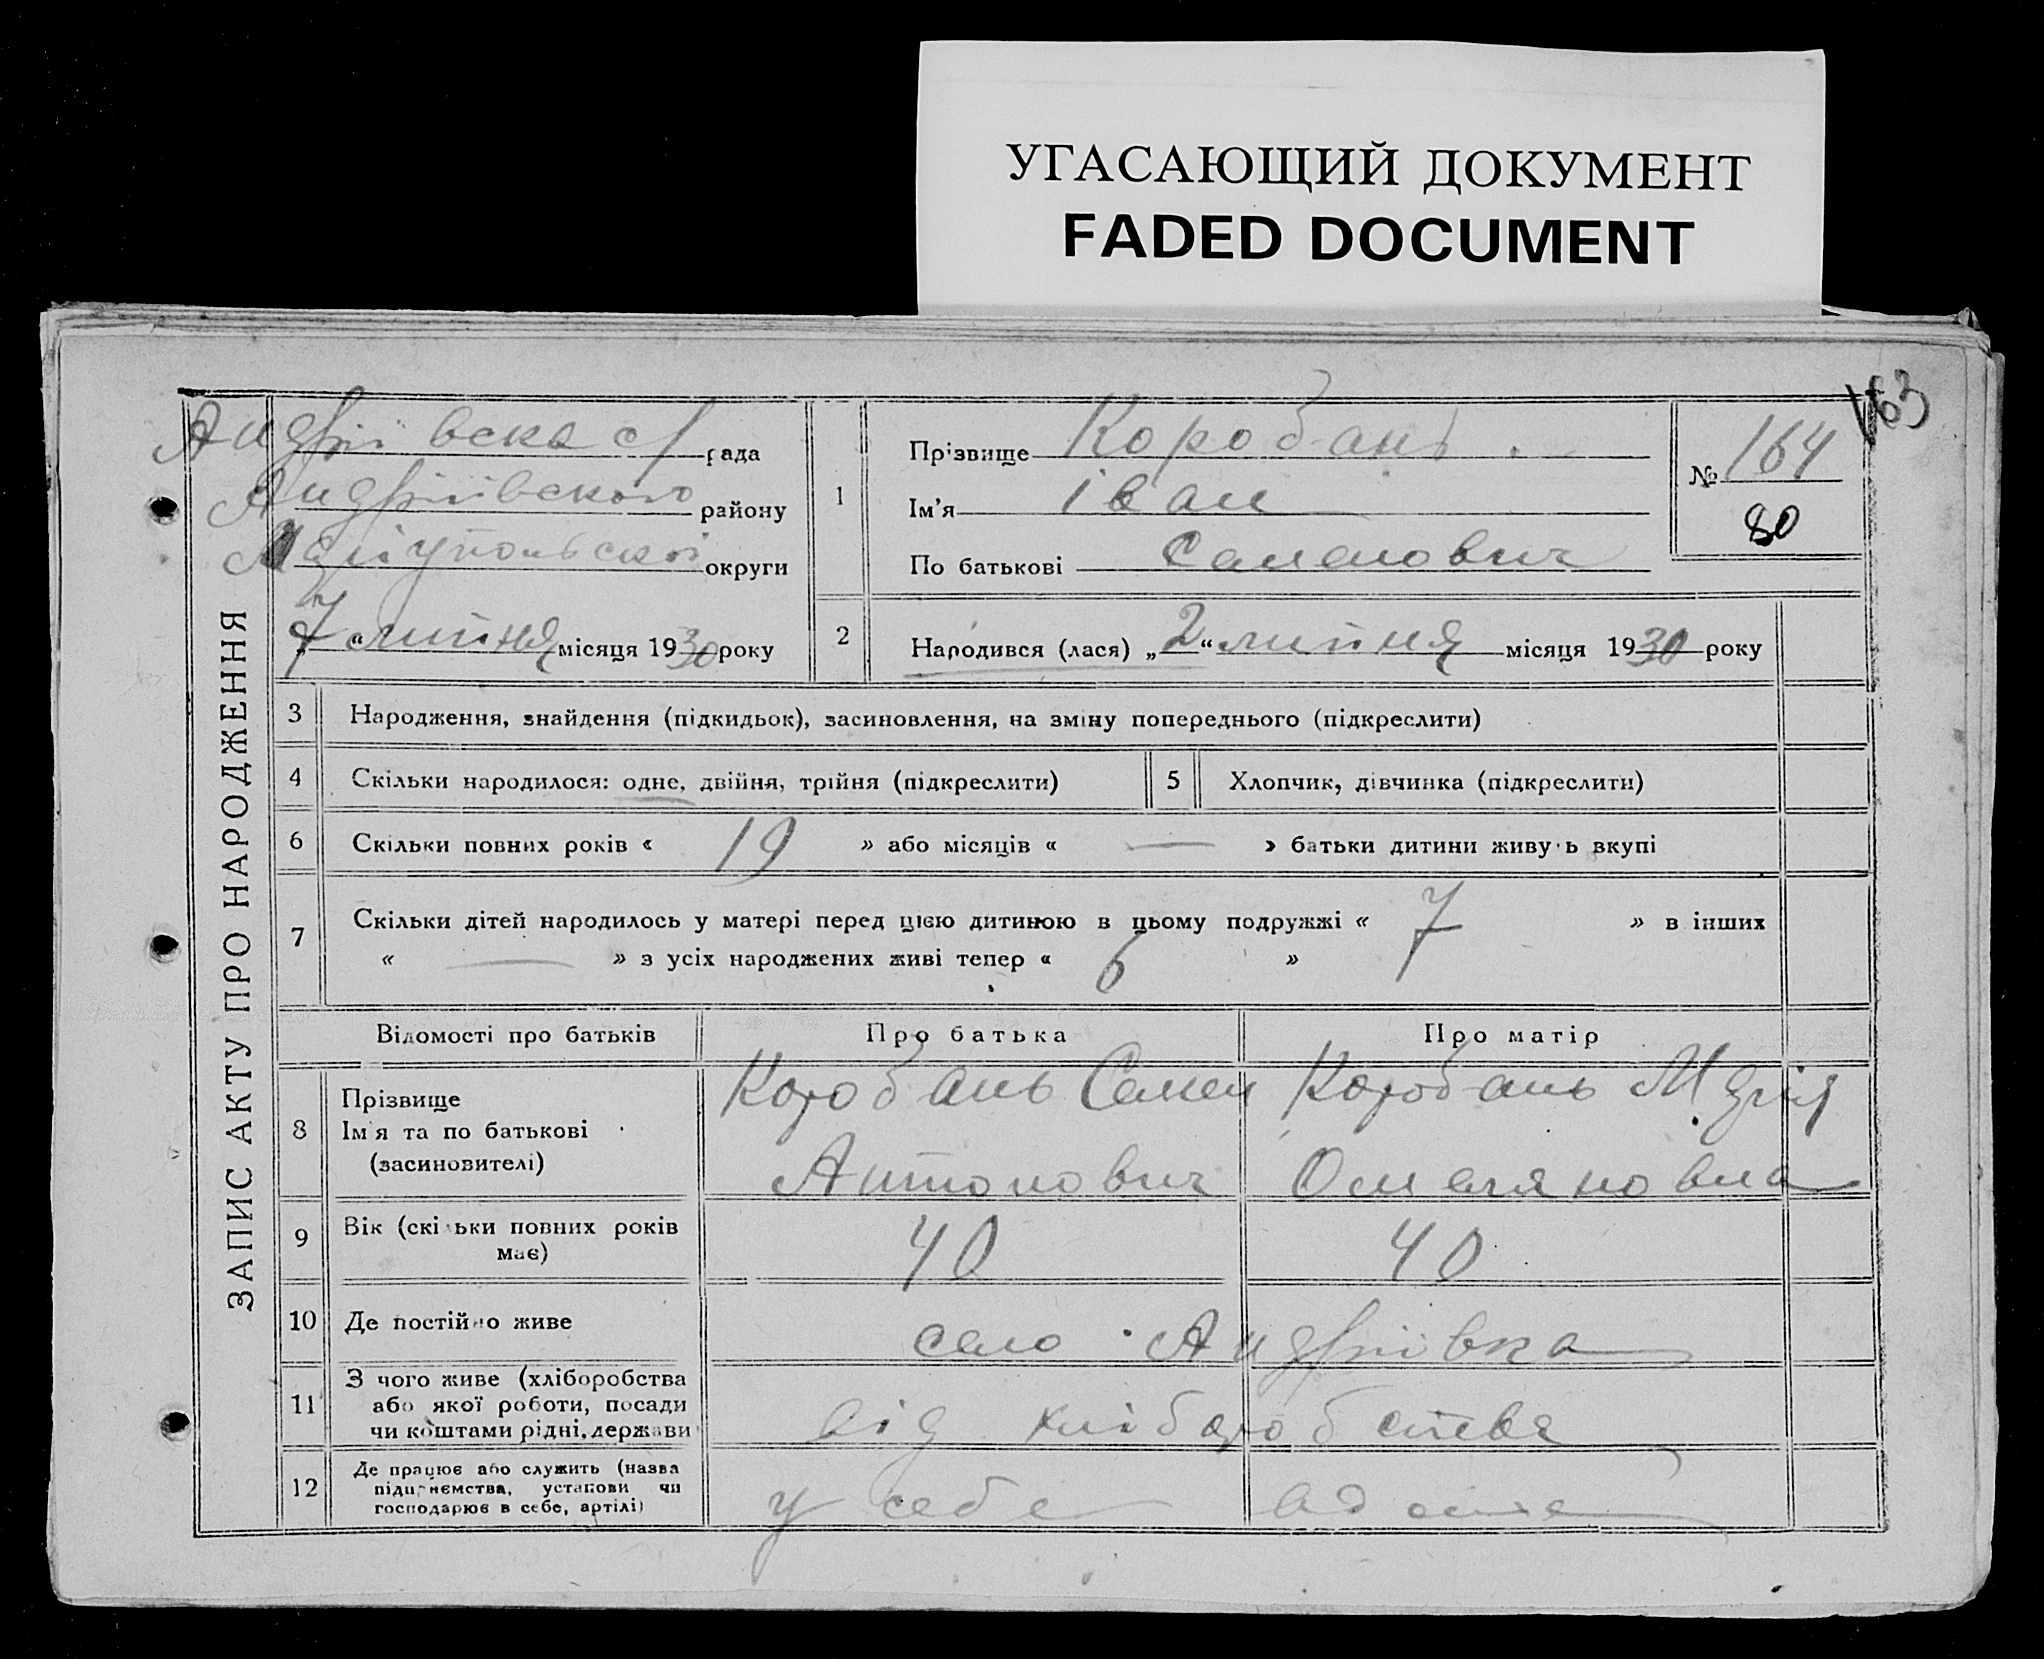 УГАСАЮЩИЙ ДОКУМЕНТ
FADED DOCUMENT
163
ЗАПИС АКТУ ПРО НАРОДЖЕННЯ
Андріївська с/рада
Андріївського району
Маріупольської округи
„7“ липня місяця 1930 року
1
Прізвище Коробань
Ім'я Іван
По батькові Семенович
№ 164
80
2 Народився (лася) „2“ липня місяця 1930 року
3 Народження, знайдення (підкидьок), засиновлення, на зміну попереднього (підкреслити)
4 Скільки народилося: одне, двійня, трійня (підкреслити) 5 Хлопчик, дівчинка (підкреслити)
6 Скільки повних років « 19 » або місяців « — » батьки дитини живуть вкупі
7 Скільки дітей народилось у матері перед цією дитиною в цьому подружжі « 7 » в інших
« — » з усіх народжених живі тепер « 6 »
Відомості про батьків Про батька Про матір
8 Прізвище
Ім'я та по батькові
(засиновителі)
Коробань Семен
Антонович
Коробань Марія
Омеляновна
9 Вік (скільки повних років
має)
40 40
10 Де постійно живе село Андріївка
11 З чого живе (хліборобства
або якої роботи, посади
чи коштами рідні, держави
від хліборобства
12 Де працює або служить (назва
підприємства, установи чи
господарює в себе, артілі)
у себе